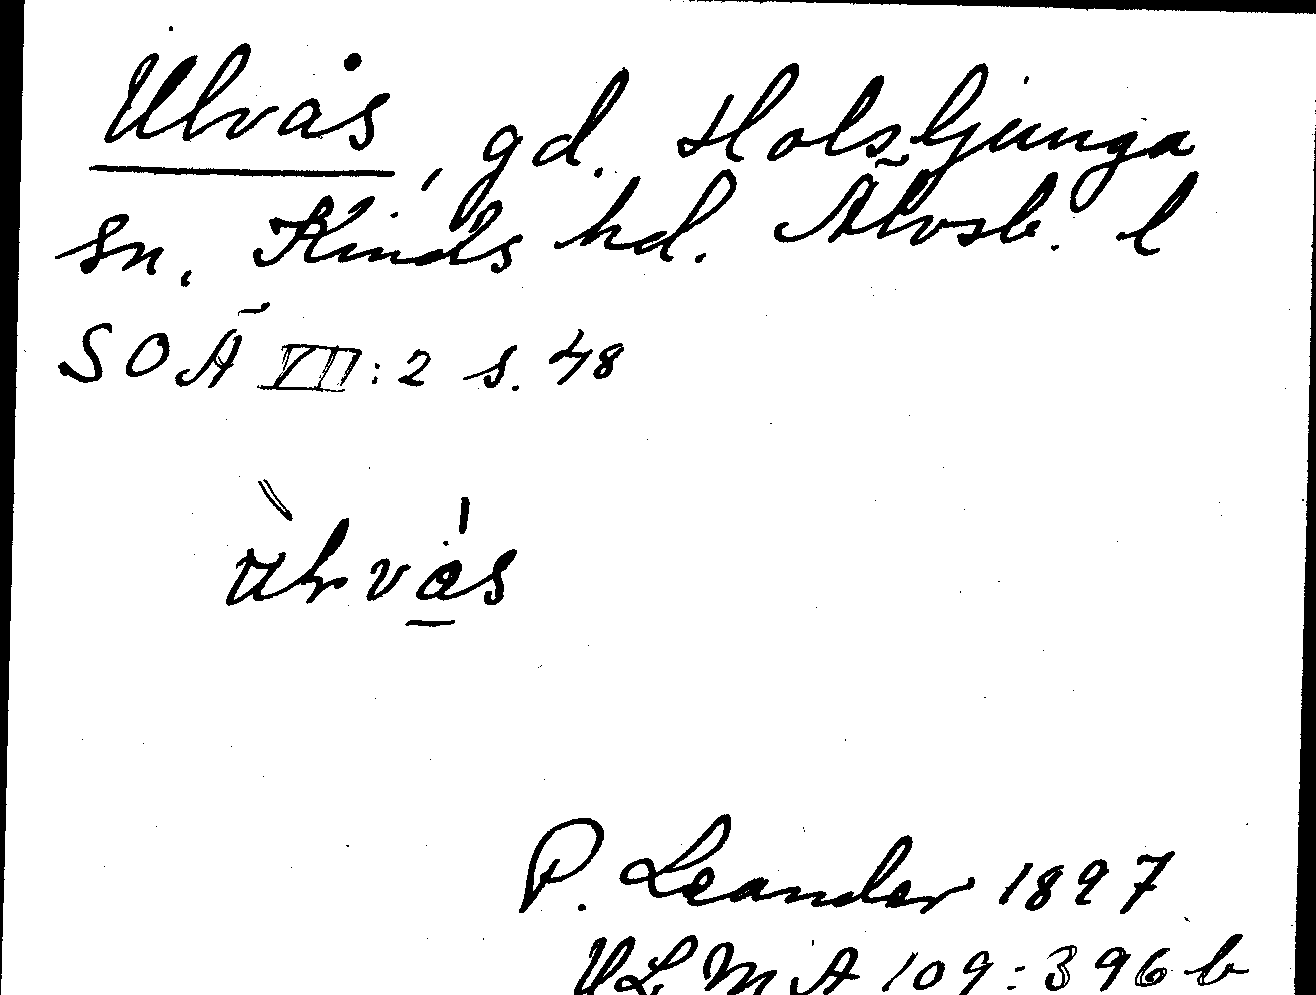 Ulvås, gd. Holsljunga
sn. Kinds hd. Älvsb. l
SOÄ VII:2 s. 48
P. Leander 1897
ULMA 109:396 b